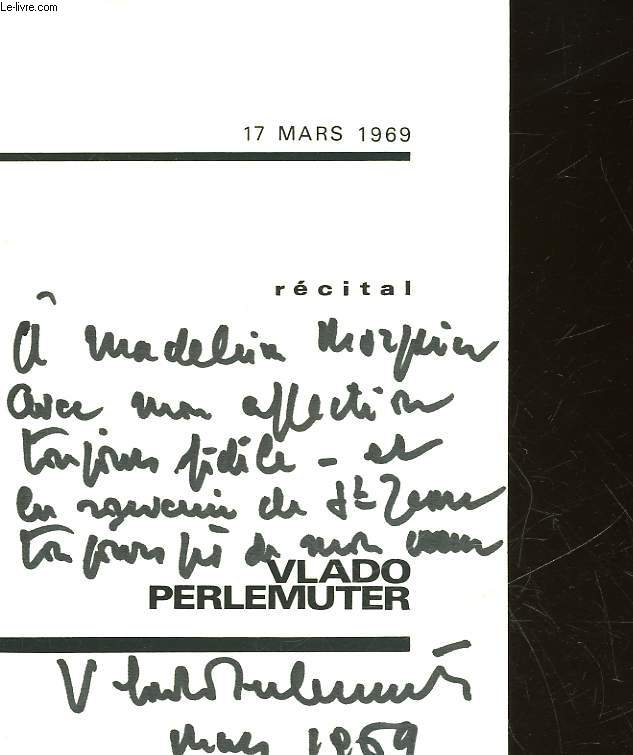 Le-livre.com
17 MARS 1969
récital
À Madeleine
avec mon affection
toujours fidèle - et
en souvenir de St
toujours près de mon coeur
VLADO
PERLEMUTER
Vlado Perlemuter
mars 1969